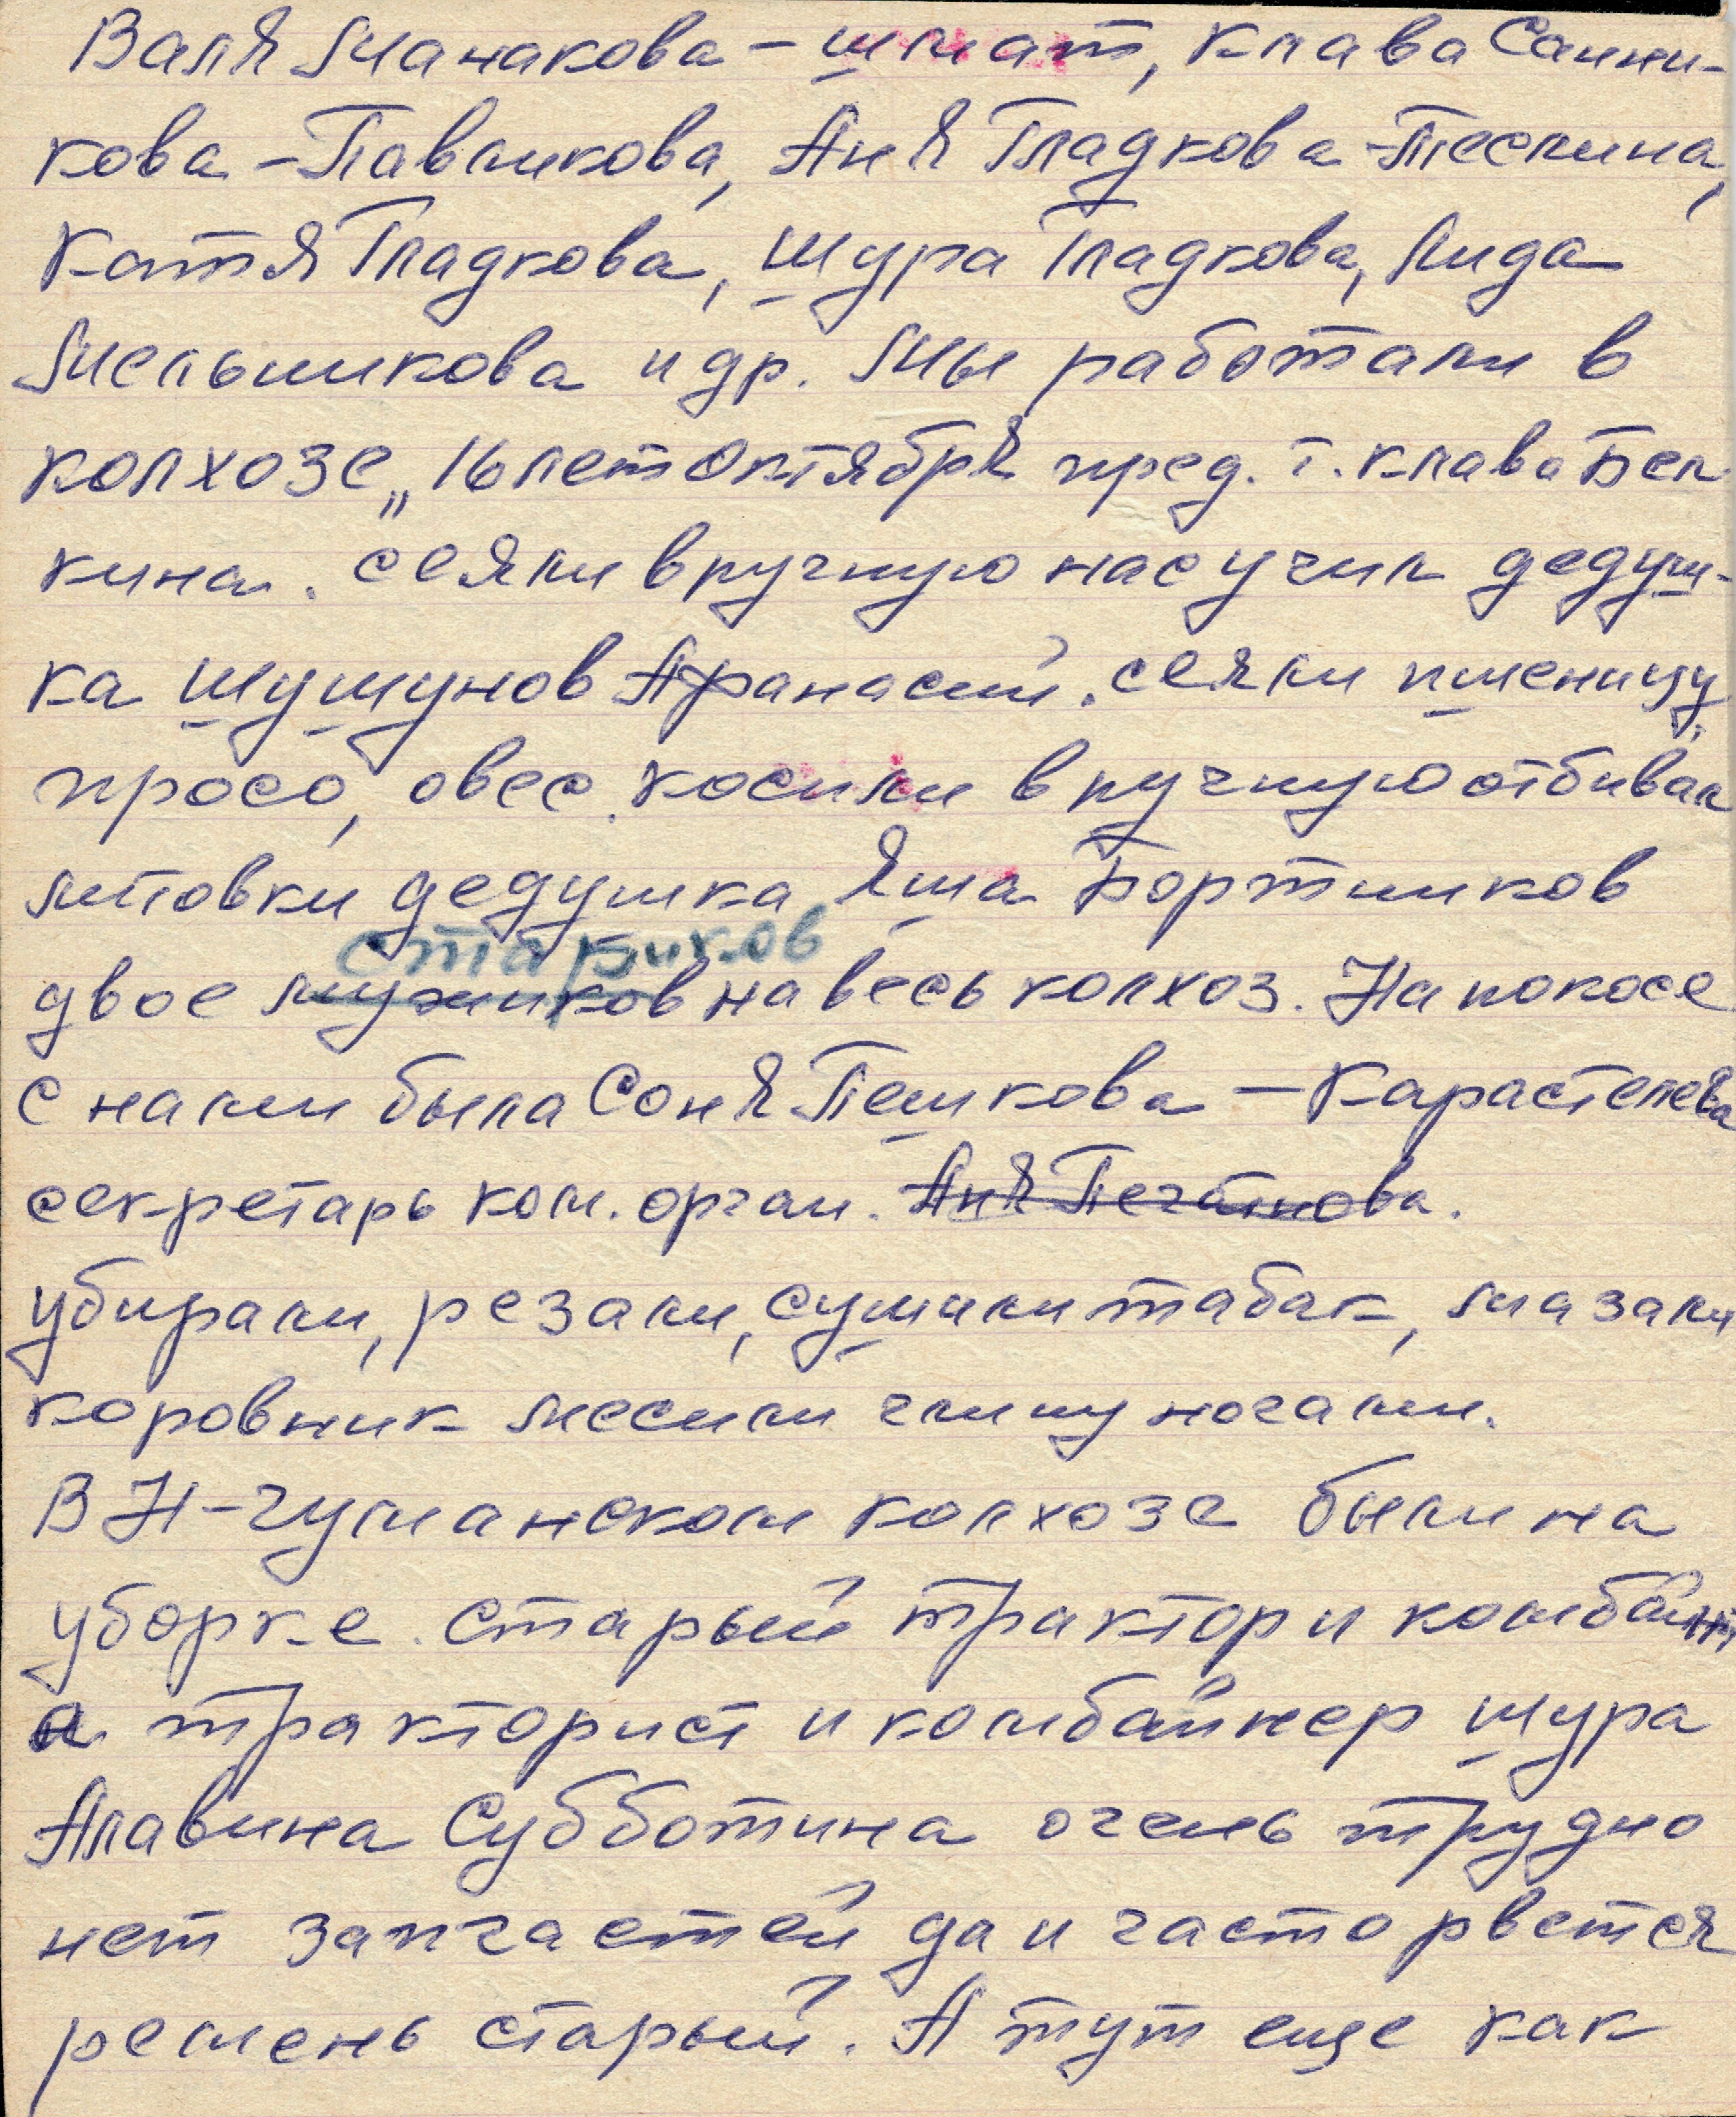 Валя Манакова - шмат, Клава Санни-
кова - Павликова, Аня Гладкова - Теслина,
Катя Гладкова, Шура Гладкова, Лида
Мельникова и др. Мы работали в
колхозе „16 лет Октября пред. т. Клава Бел
кина. сеяли вручную нас учил дедуш-
ка Шушунов Афанасий. сеяли пшеницу,
просо, овес. косили вручную отбивал
литовки дедушка Яша Бортников
стариков
двое мужиков на весь колхоз. На покосе
с нами была Соня Пешкова - Карастелева
секретарь ком. орган. Аня Печатнова.
убирали, резали, сушили табак, мазали
коровник месили глину ногами.
В Н-Чуманском колхозе были на
уборке. старый трактор и комбайн,
а тракторист и комбайнер Шура
Алавина Субботина очень трудно
нет запчастей да и часто рвется
ремень старый. А тут еще как